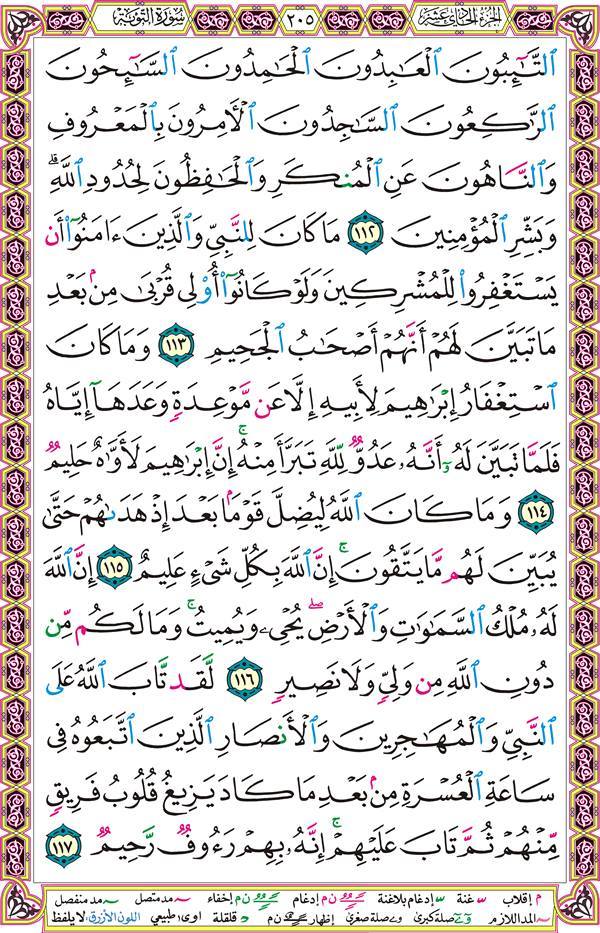 الجزء الحادي عشر ٢٠٥ سورة التوبة
ٱلتَّـٰٓئِبُونَ ٱلْعَـٰبِدُونَ ٱلْحَـٰمِدُونَ ٱلسَّـٰٓئِحُونَ
ٱلرَّٰكِعُونَ ٱلسَّـٰجِدُونَ ٱلْـَٔامِرُونَ بِٱلْمَعْرُوفِ
وَٱلنَّاهُونَ عَنِ ٱلْمُنكَرِ وَٱلْحَـٰفِظُونَ لِحُدُودِ ٱللَّهِ ۗ
وَبَشِّرِ ٱلْمُؤْمِنِينَ ١١٢ مَا كَانَ لِلنَّبِىِّ وَٱلَّذِينَ ءَامَنُوٓا۟ أَن
يَسْتَغْفِرُوا۟ لِلْمُشْرِكِينَ وَلَوْ كَانُوٓا۟ أُو۟لِى قُرْبَىٰ مِنۢ بَعْدِ
مَا تَبَيَّنَ لَهُمْ أَنَّهُمْ أَصْحَـٰبُ ٱلْجَحِيمِ ١١٣ وَمَا كَانَ
ٱسْتِغْفَارُ إِبْرَٰهِيمَ لِأَبِيهِ إِلَّا عَن مَّوْعِدَةٍ وَعَدَهَآ إِيَّاهُ
فَلَمَّا تَبَيَّنَ لَهُۥٓ أَنَّهُۥ عَدُوٌّ لِّلَّهِ تَبَرَّأَ مِنْهُ ۚ إِنَّ إِبْرَٰهِيمَ لَأَوَّٰهٌ حَلِيمٌ
١١٤ وَمَا كَانَ ٱللَّهُ لِيُضِلَّ قَوْمًۢا بَعْدَ إِذْ هَدَىٰهُمْ حَتَّىٰ
يُبَيِّنَ لَهُم مَّا يَتَّقُونَ ۚ إِنَّ ٱللَّهَ بِكُلِّ شَىْءٍ عَلِيمٌ ١١٥ إِنَّ ٱللَّهَ
لَهُۥ مُلْكُ ٱلسَّمَـٰوَٰتِ وَٱلْأَرْضِ ۖ يُحْىِۦ وَيُمِيتُ ۚ وَمَا لَكُم مِّن
دُونِ ٱللَّهِ مِن وَلِىٍّ وَلَا نَصِيرٍ ١١٦ لَّقَد تَّابَ ٱللَّهُ عَلَى
ٱلنَّبِىِّ وَٱلْمُهَـٰجِرِينَ وَٱلْأَنصَارِ ٱلَّذِينَ ٱتَّبَعُوهُ فِى
سَاعَةِ ٱلْعُسْرَةِ مِنۢ بَعْدِ مَا كَادَ يَزِيغُ قُلُوبُ فَرِيقٍ
مِّنْهُمْ ثُمَّ تَابَ عَلَيْهِمْ ۚ إِنَّهُۥ بِهِمْ رَءُوفٌ رَّحِيمٌ ١١٧
م إقلاب غنة إدغام بلاغنة ن م إدغام ن م إخفاء مد متصل مد منفصل
المد اللازم صلة كبرى صلة صغرى إظهار ن م قلقلة اوى طبيعي اللون الأزرق: لا يلفظ